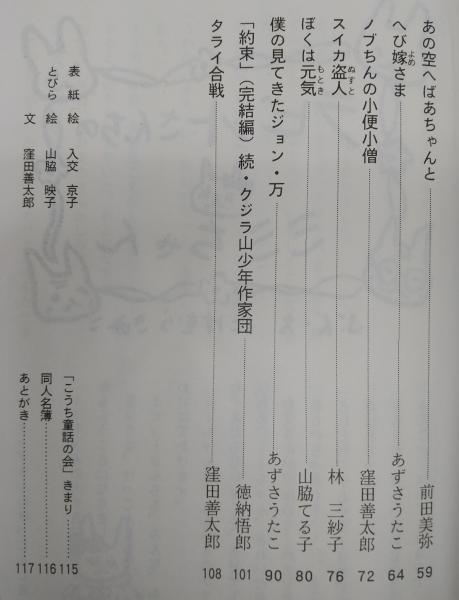 あの空へばあちゃんと 前田美弥 59
へび嫁さま よめ あずさうたこ 64
ノブちんの小便小僧 窪田善太郎 72
スイカ盗人 ぬすと 林 三紗子 76
ぼくは元気 もとき 山脇てる子 80
僕の見てきたジョン・万 あずさうたこ 90
「約束」(完結編)続・クジラ山少年作家団 徳納悟郎 101
タライ合戦 窪田善太郎 108
表紙絵 入交 京子
とびら 絵 山脇 映子
文 窪田善太郎
「こうち童話の会」きまり 115
同人名簿 116
あとがき 117